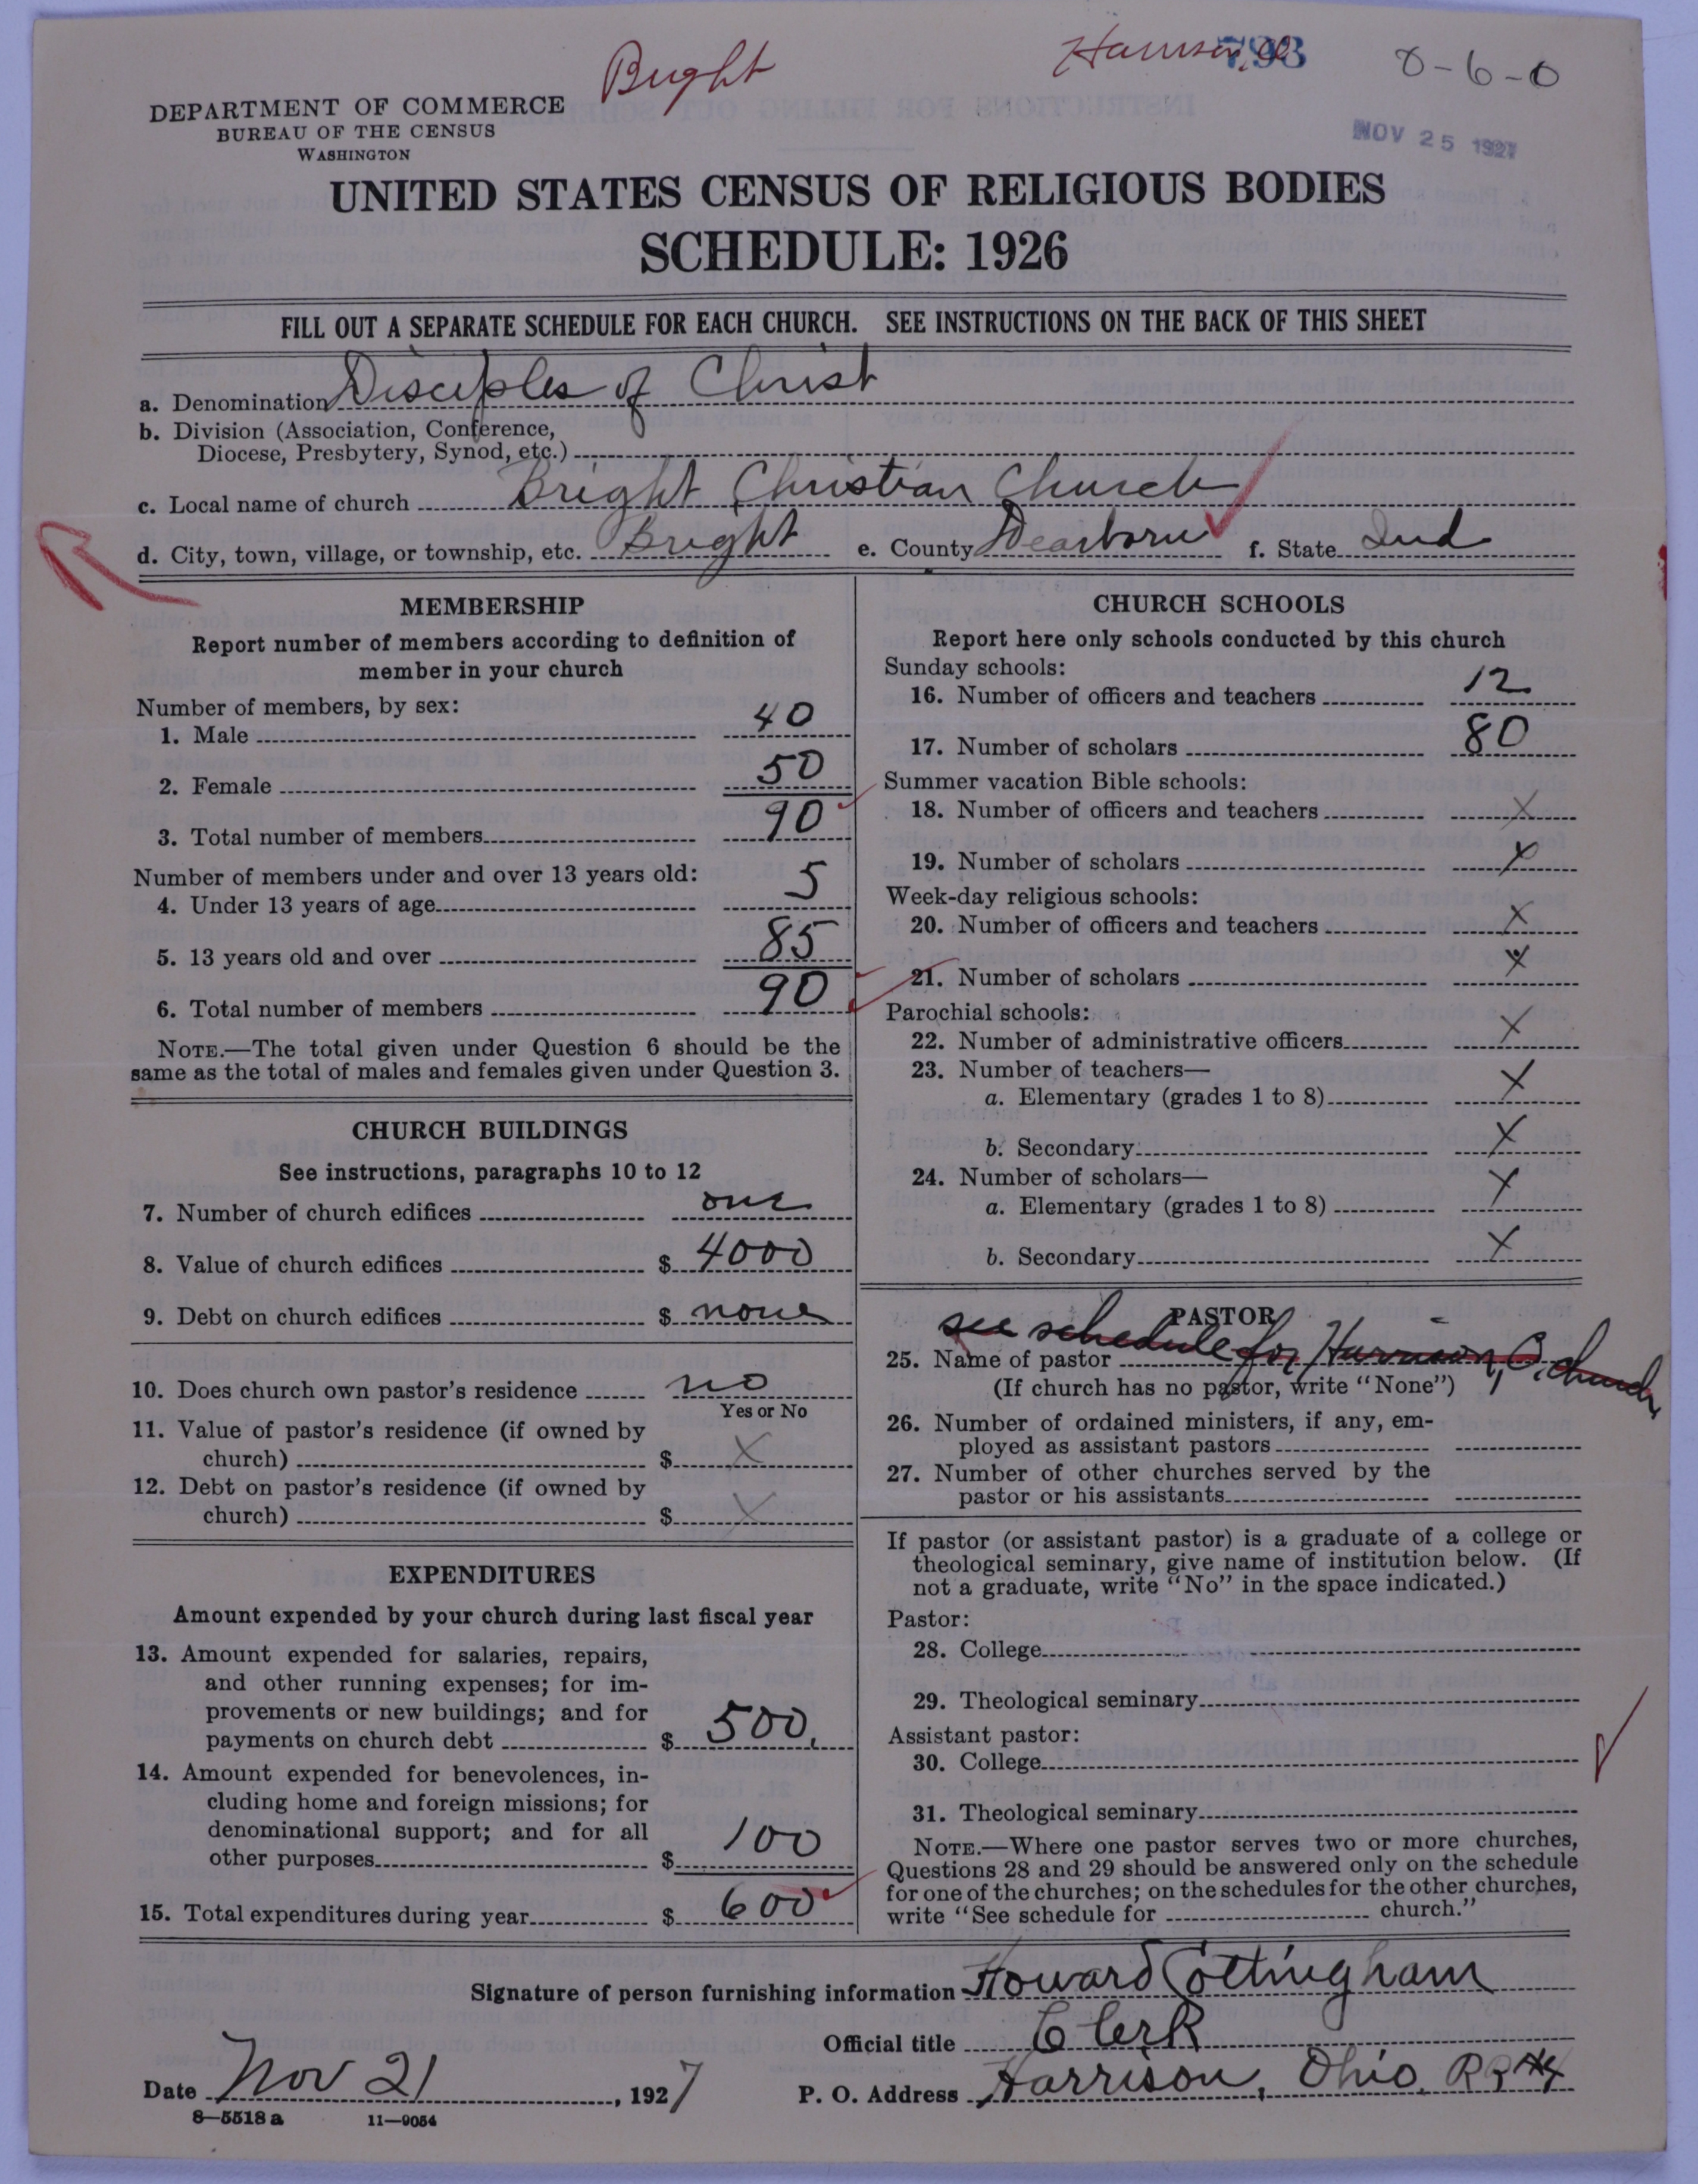 Bright
Harrison, O.
793
8-6-0
DEPARTMENT OF COMMERCE
BUREAU OF THE CENSUS
WASHINGTON
NOV 25 1927
UNITED STATES CENSUS OF RELIGIOUS BODIES
SCHEDULE: 1926
FILL OUT A SEPARATE SCHEDULE FOR EACH CHURCH. SEE INSTRUCTIONS ON THE BACK OF THIS SHEET
a. Denomination Disciples of Christ
b. Division (Association, Conference,
Diocese, Presbytery, Synod, etc.)
c. Local name of church Bright Christian Church
d. City, town, village, or township, etc. Bright e. County Dearborn f. State Ind
MEMBERSHIP
Report number of members according to definition of
member in your church
Number of members, by sex:
1. Male 40
2. Female 50
3. Total number of members 90
Number of members under and over 13 years old:
4. Under 13 years of age 5
5. 13 years old and over 85
6. Total number of members 90
NOTE.—The total given under Question 6 should be the
same as the total of males and females given under Question 3.
CHURCH BUILDINGS
See instructions, paragraphs 10 to 12
7. Number of church edifices one
8. Value of church edifices $ 4000
9. Debt on church edifices $ none
10. Does church own pastor's residence no
Yes or No
11. Value of pastor's residence (if owned by
church) $ X
12. Debt on pastor's residence (if owned by
church) $ X
EXPENDITURES
Amount expended by your church during last fiscal year
13. Amount expended for salaries, repairs,
and other running expenses; for im-
provements or new buildings; and for
payments on church debt $ 500.
14. Amount expended for benevolences, in-
cluding home and foreign missions; for
denominational support; and for all
other purposes $ 100
15. Total expenditures during year $ 600
CHURCH SCHOOLS
Report here only schools conducted by this church
Sunday schools:
16. Number of officers and teachers 12
17. Number of scholars 80
Summer vacation Bible schools:
18. Number of officers and teachers X
19. Number of scholars X
Week-day religious schools:
20. Number of officers and teachers X
21. Number of scholars X
Parochial schools:
22. Number of administrative officers X
23. Number of teachers—
a. Elementary (grades 1 to 8) X
b. Secondary X
24. Number of scholars—
a. Elementary (grades 1 to 8) X
b. Secondary X
PASTOR
25. Name of pastor see schedule for Harrison, O. church
(If church has no pastor, write "None")
26. Number of ordained ministers, if any, em-
ployed as assistant pastors
27. Number of other churches served by the
pastor or his assistants
If pastor (or assistant pastor) is a graduate of a college or
theological seminary, give name of institution below. (If
not a graduate, write "No" in the space indicated.)
Pastor:
28. College
29. Theological seminary
Assistant pastor:
30. College
31. Theological seminary
NOTE.—Where one pastor serves two or more churches,
Questions 28 and 29 should be answered only on the schedule
for one of the churches; on the schedules for the other churches,
write "See schedule for church."
Signature of person furnishing information Howard Cottingham
Official title Clerk
Date Nov 21, 1927 P. O. Address Harrison, Ohio. RR #4
8—5518 a 11—9054